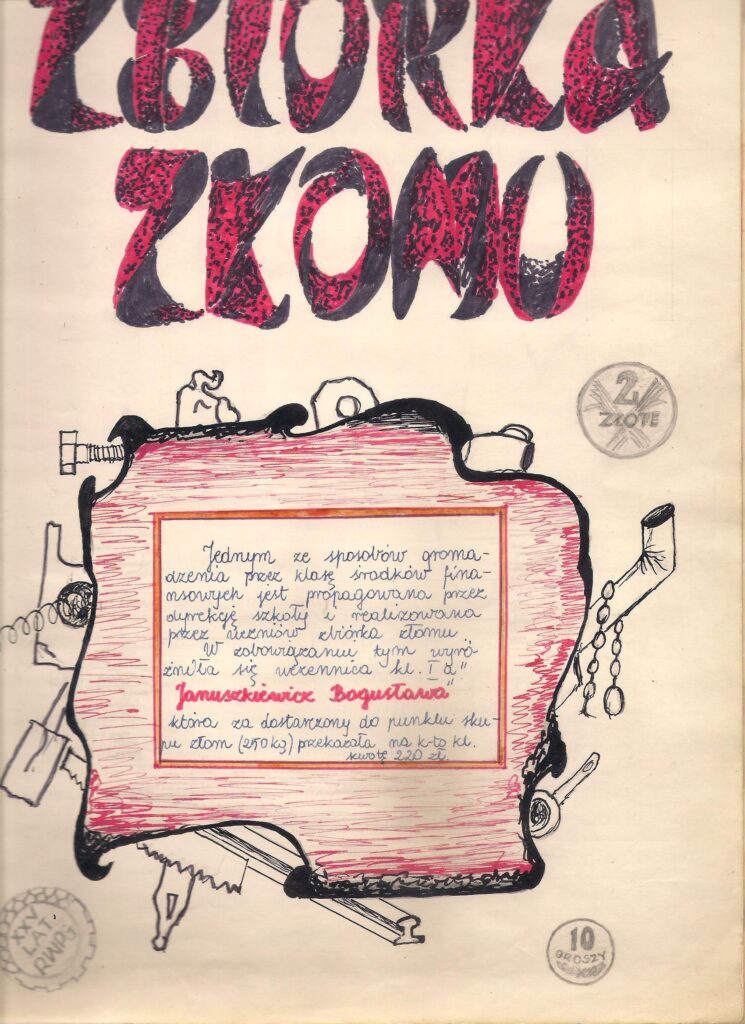 ZBIÓRKA
ZŁOMU
2
ZŁOTE
Jednym ze sposobów groma-
dzenia przez klasę środków fina-
nsowych jest propagowana przez
dyrekcję szkoły i realizowana
przez uczniów zbiórka złomu.
W zobowiązaniu tym wyró-
żniła się uczennica kl. I a"
Januszkiewicz Bogusława"
która za dostarczony do punktu sku-
pu złom (250 kg) przekazała na k-to kl.
kwotę 220 zł.
XXV
LAT
RWPG
10
GROSZY